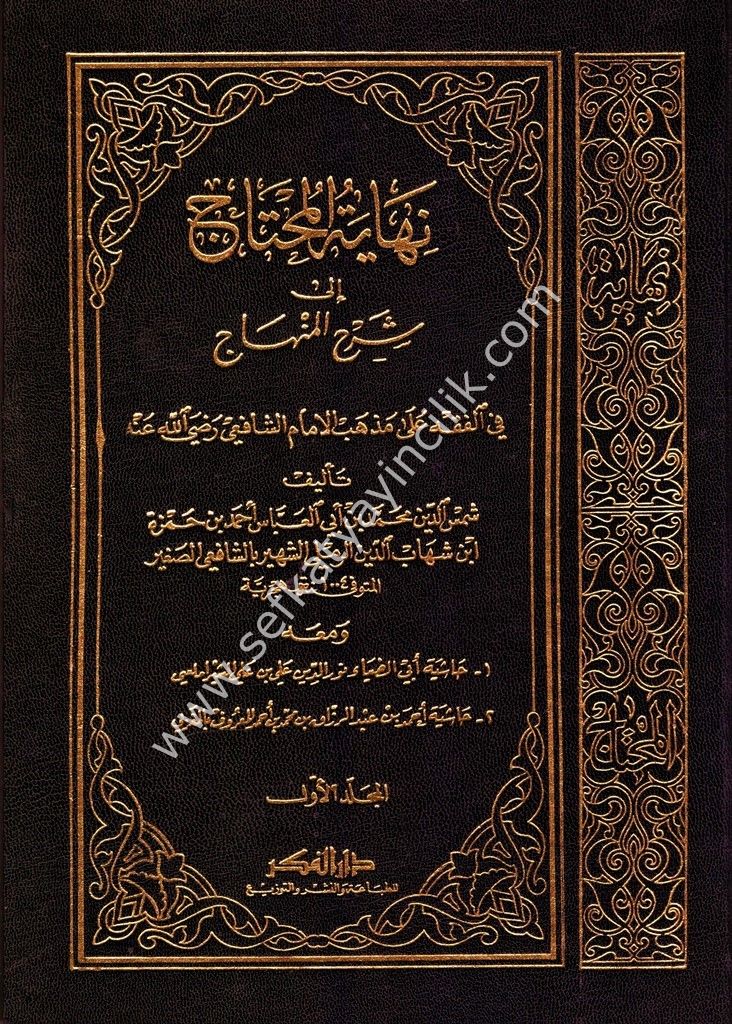 نهاية المحتاج
إلى
شرح المنهاج
في الفقه على مذهب الإمام الشافعي رضي الله عنه
تأليف
شمس الدين محمد بن أبي العباس أحمد بن حمزة
ابن شهاب الدين الشهير بالشافعي الصغير
المتوفى ١٠٠٤ هجرية
ومعه
١- حاشية أبي الضياء نور الدين علي بن علي
٢- حاشية أحمد بن عبد الرزاق بن محمد بن أحمد المعروف
المجلد الأول
دار الفكر
للطباعة والنشر والتوزيع
نهاية
المحتاج
www.sefkatyayincilik.com